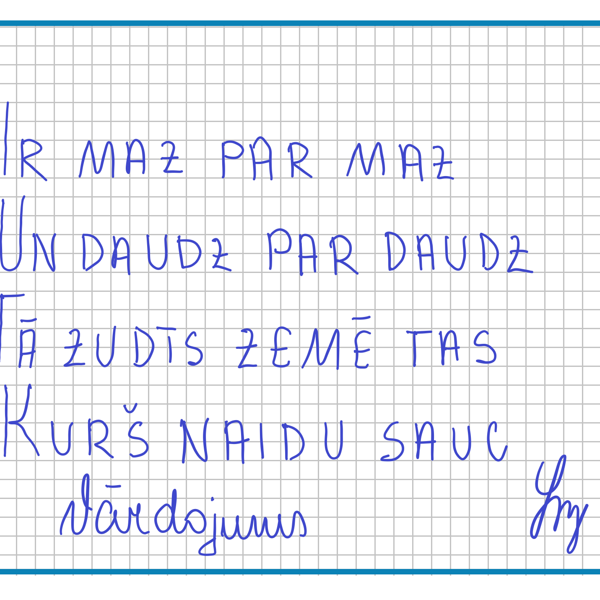 Ir maz par maz
Un daudz par daudz
Tā zudīs zemē tas
Kurš naidu sauc
Vārdojums